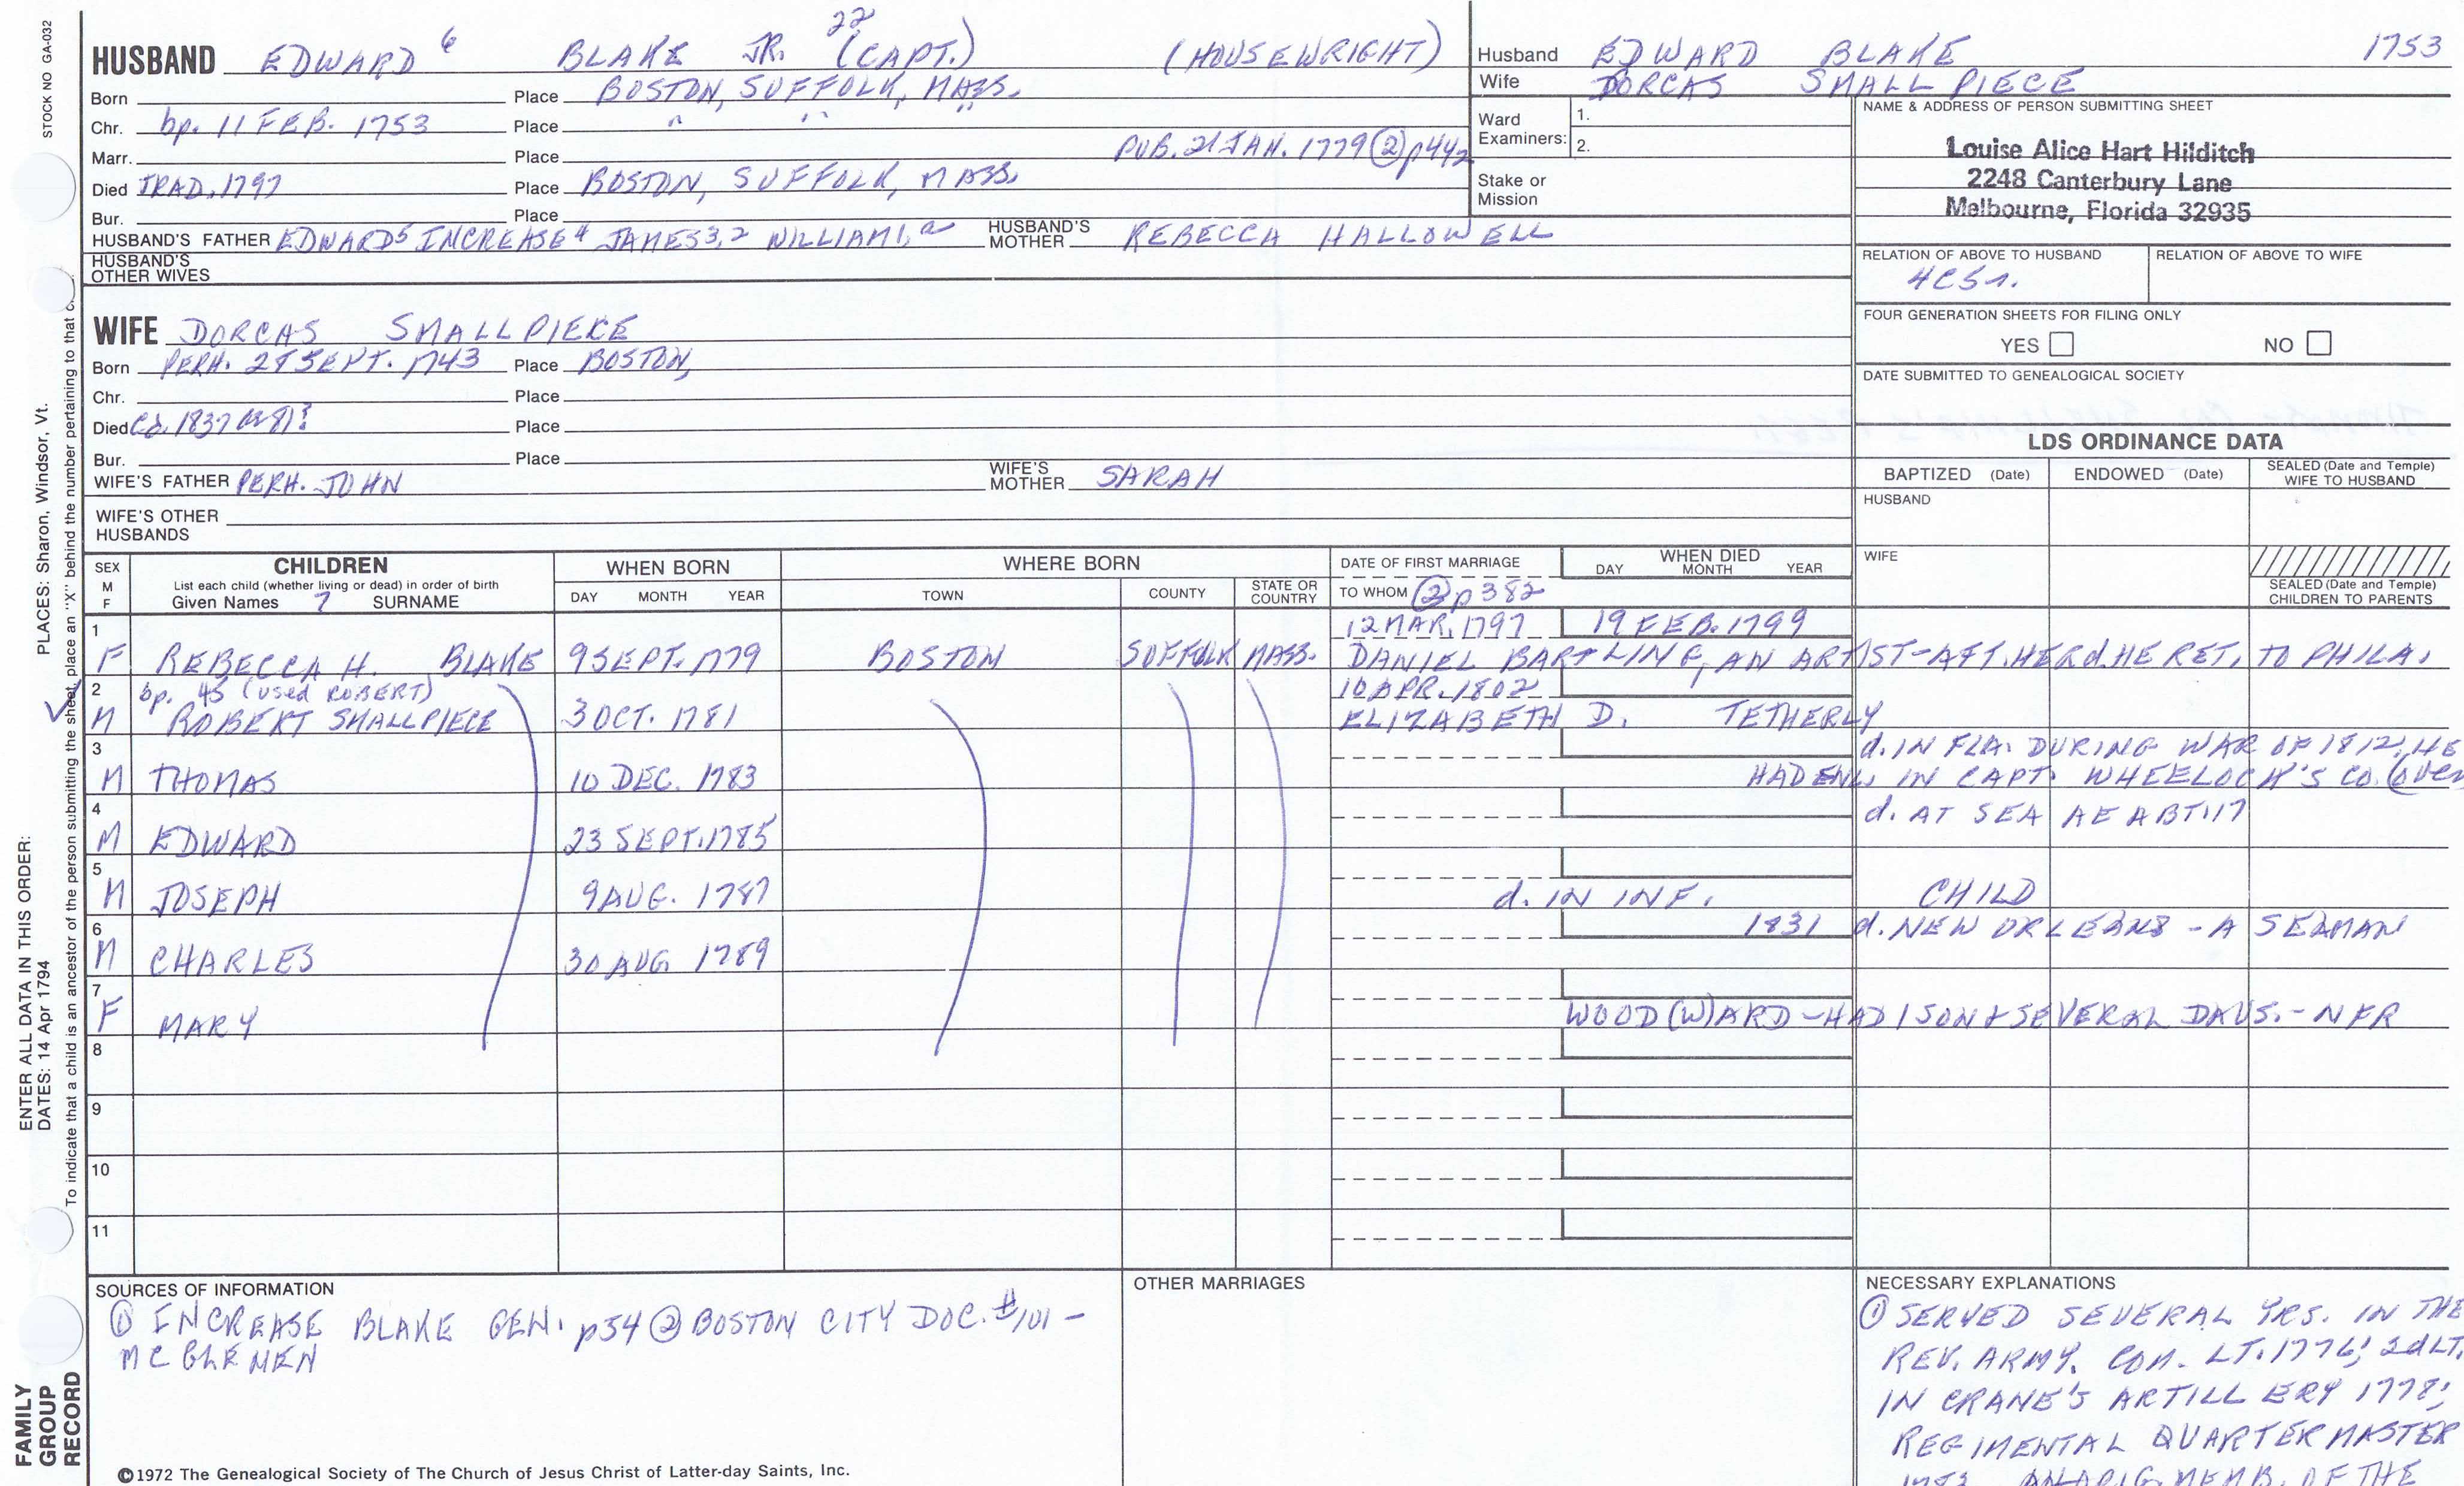 STOCK NO GA-032
HUSBAND EDWARD 6 BLAKE JR. 22 (CAPT.) (HOUSEWRIGHT)
Born Place BOSTON, SUFFOLK, MASS.
Chr. bp. 11 FEB. 1753 Place " " "
Marr. Place PUB. 21 JAN. 1779 ② p442
Died TRAD. 1797 Place BOSTON, SUFFOLK, MASS.
Bur. Place
HUSBAND'S FATHER EDWARD5 INCREASE4 JAMES3,2 WILLIAM1,a HUSBAND'S MOTHER REBECCA HALLOWELL
HUSBAND'S OTHER WIVES
Husband EDWARD BLAKE 1753
Wife DORCAS SMALLPIECE
Ward Examiners: 1.
2.
Stake or Mission
NAME & ADDRESS OF PERSON SUBMITTING SHEET
Louise Alice Hart Hilditch
2248 Canterbury Lane
Melbourne, Florida 32935
RELATION OF ABOVE TO HUSBAND RELATION OF ABOVE TO WIFE
4C5r.
FOUR GENERATION SHEETS FOR FILING ONLY
YES NO
DATE SUBMITTED TO GENEALOGICAL SOCIETY
WIFE DORCAS SMALLPIECE
Born PERH. 28 SEPT. 1743 Place BOSTON,
Chr. Place
Died Cd. 1837 Place
Bur. Place
WIFE'S FATHER PERH. JOHN WIFE'S MOTHER SARAH
WIFE'S OTHER HUSBANDS
LDS ORDINANCE DATA
BAPTIZED (Date) ENDOWED (Date) SEALED (Date and Temple) WIFE TO HUSBAND
HUSBAND
WIFE
SEALED (Date and Temple) CHILDREN TO PARENTS
SEX M F CHILDREN
List each child (whether living or dead) in order of birth
Given Names 7 SURNAME
WHEN BORN
DAY MONTH YEAR
WHERE BORN
TOWN COUNTY STATE OR COUNTRY
DATE OF FIRST MARRIAGE
TO WHOM ② p382
WHEN DIED
DAY MONTH YEAR
1 12 MAR. 1797 19 FEB. 1799
F REBECCA H. BLAKE 9 SEPT. 1779 BOSTON SUFFOLK MASS. DANIEL BARTLING, AN ARTIST-AFT. HER d. HE RET. TO PHILA.
2 bp. 45 (used ROBERT) 10 APR. 1802
M ROBERT SMALLPIECE 3 OCT. 1781 ELIZABETH D. TETHERLY
3 d. IN FLA. DURING WAR OF 1812, HE
M THOMAS 10 DEC. 1783 HAD ENL. IN CAPT. WHEELOCK'S CO. (over
4 d. AT SEA AE ABT. 17
M EDWARD 23 SEPT. 1785
5
M JOSEPH 9 AUG. 1787 d. IN INF. CHILD
6 1831 d. NEW ORLEANS - A SEAMAN
M CHARLES 30 AUG 1789
7
F MARY WOOD(W)ARD - HAD 1 SON & SEVERAL DAUS. - NFR
8
9
10
11
SOURCES OF INFORMATION
① INCREASE BLAKE GEN. p54 ② BOSTON CITY DOC. #101 -
MC GLENEN
OTHER MARRIAGES
NECESSARY EXPLANATIONS
① SERVED SEVERAL YRS. IN THE
REV. ARMY. COM. LT. 1776; 2d LT.
IN CRANE'S ARTILLERY 1778;
REGIMENTAL QUARTERMASTER
AN ORIG. MEMB. OF THE
©1972 The Genealogical Society of The Church of Jesus Christ of Latter-day Saints, Inc.
ENTER ALL DATA IN THIS ORDER:
DATES: 14 Apr 1794 PLACES: Sharon, Windsor, Vt.
To indicate that a child is an ancestor of the person submitting the sheet, place an "X" behind the number pertaining to that
FAMILY GROUP RECORD